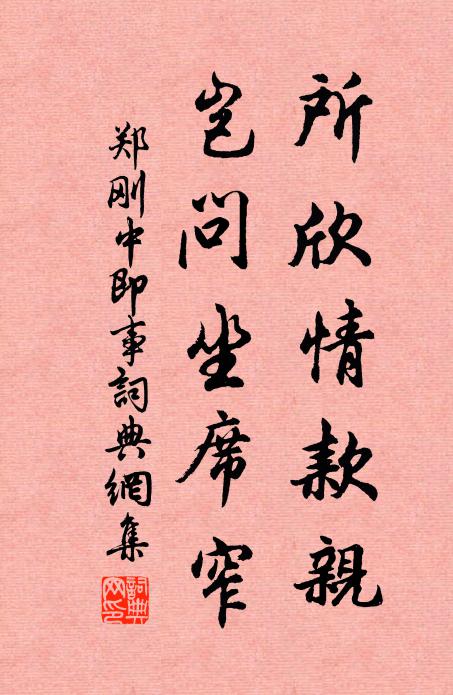 所欣情款親
岂问坐席窄
郑刚中即事詞典網集
詞典网印